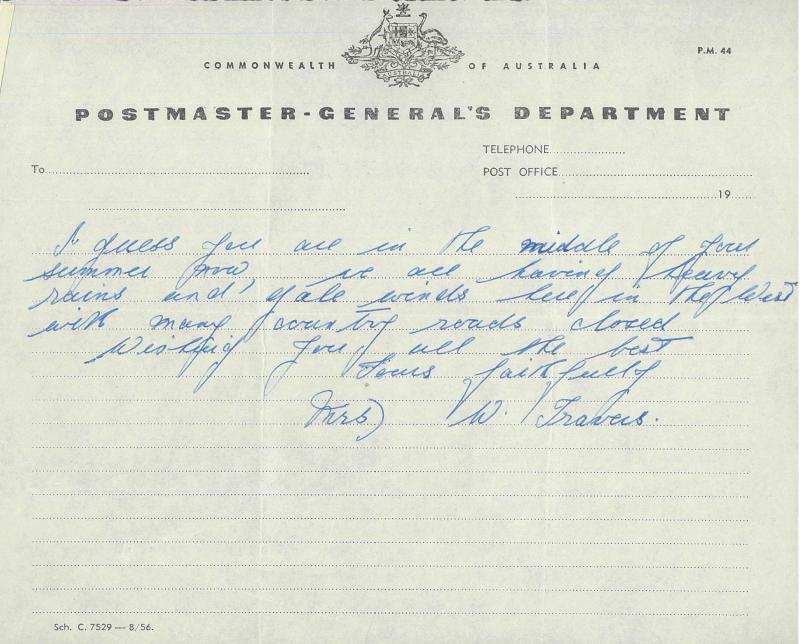 COMMONWEALTH OF AUSTRALIA
P.M. 44
POSTMASTER-GENERAL'S DEPARTMENT
TELEPHONE
To
POST OFFICE
19
I guess you are in the middle of your
summer now, we are having heavy
rains and gale winds here in the West
with many country roads closed
Wishing you all the best
Yours faithfully
Mrs) W. Travers.
Sch. C. 7529 — 8/56.